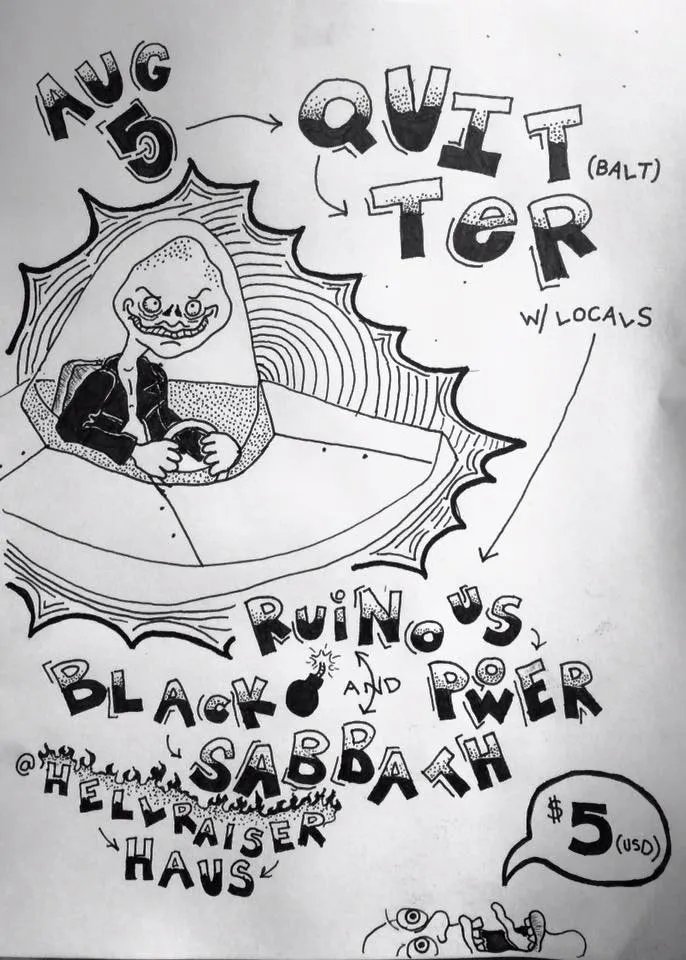 AUG
5
QUIT
TER
(BALT)
W/ LOCALS
RUINOUS
POWER
AND
BLACK
SABBATH
@ HELLRAISER
HAUS
$5 (USD)